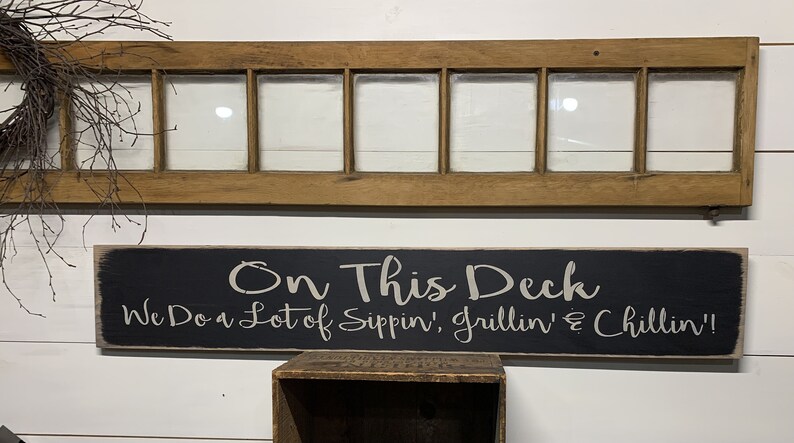 On This Deck
We Do a Lot of Sippin', Grillin' & Chillin'!